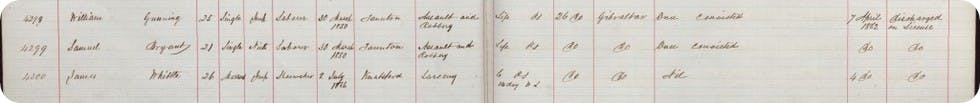 4298 William Gunning 25 Single Impt Laborer 30 March 1850 Taunton Assault and Robbery Life 26 Do Gibraltar Once convicted 7 April 1862 discharged on License
4299 Samuel Bryant 21 Single Laborer 30 March 1850 Taunton Assault and Robbery Life Do Do Once convicted Do Do
4300 James 26 Impt 2 July Knutsford Larceny 6 Do Do Nil 4 Do Do